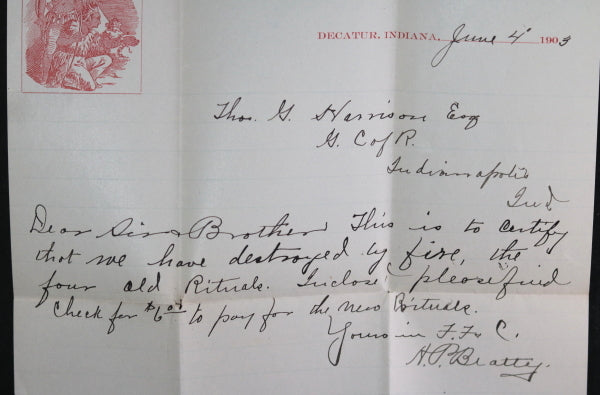 DECATUR, INDIANA, June 4 1903
Thos. G. Harrison Esq
G. C of R.
Indianapolis
Ind
Dear Sir & Brother This is to certify
that we have destroyed by fire, the
four old Rituals. Inclose please find
Check for $6.00 to pay for the new Rituals.
Yours in F. F. & C.
H. P. Beatty.